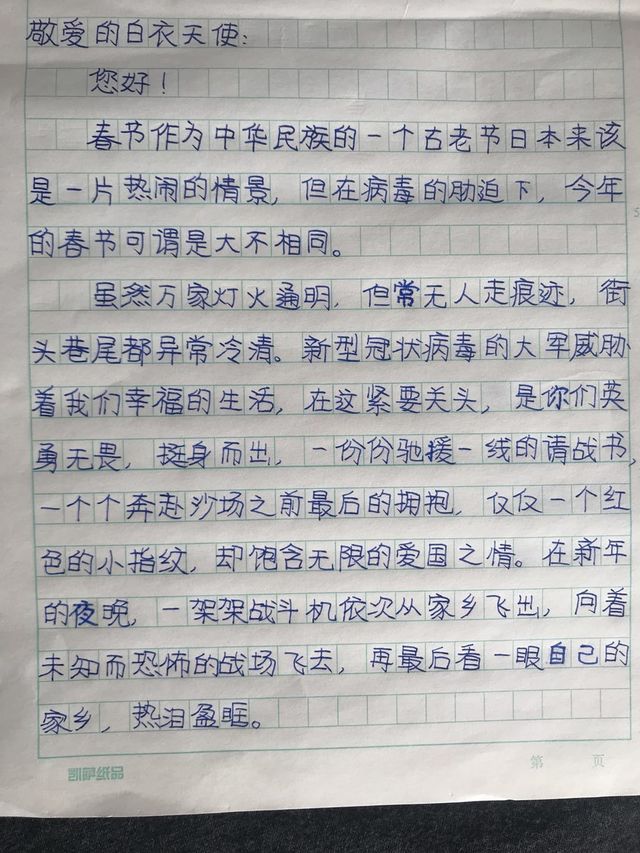 敬爱的白衣天使:
您好!
春节作为中华民族的一个古老节日本来该
是一片热闹的情景,但在病毒的胁迫下,今年
的春节可谓是大不相同。
虽然万家灯火通明,但常无人走痕迹,街
头巷尾都异常冷清。新型冠状病毒的大军威胁
着我们幸福的生活,在这紧要关头,是你们英
勇无畏,挺身而出,一份份驰援一线的请战书,
一个个奔赴沙场之前最后的拥抱,仅仅一个红
色的小指纹,却饱含无限的爱国之情。在新年
的夜晚,一架架战斗机依次从家乡飞出,向着
未知而恐怖的战场飞去,再最后看一眼自己的
家乡,热泪盈眶。
凯萨纸品
第 页
5